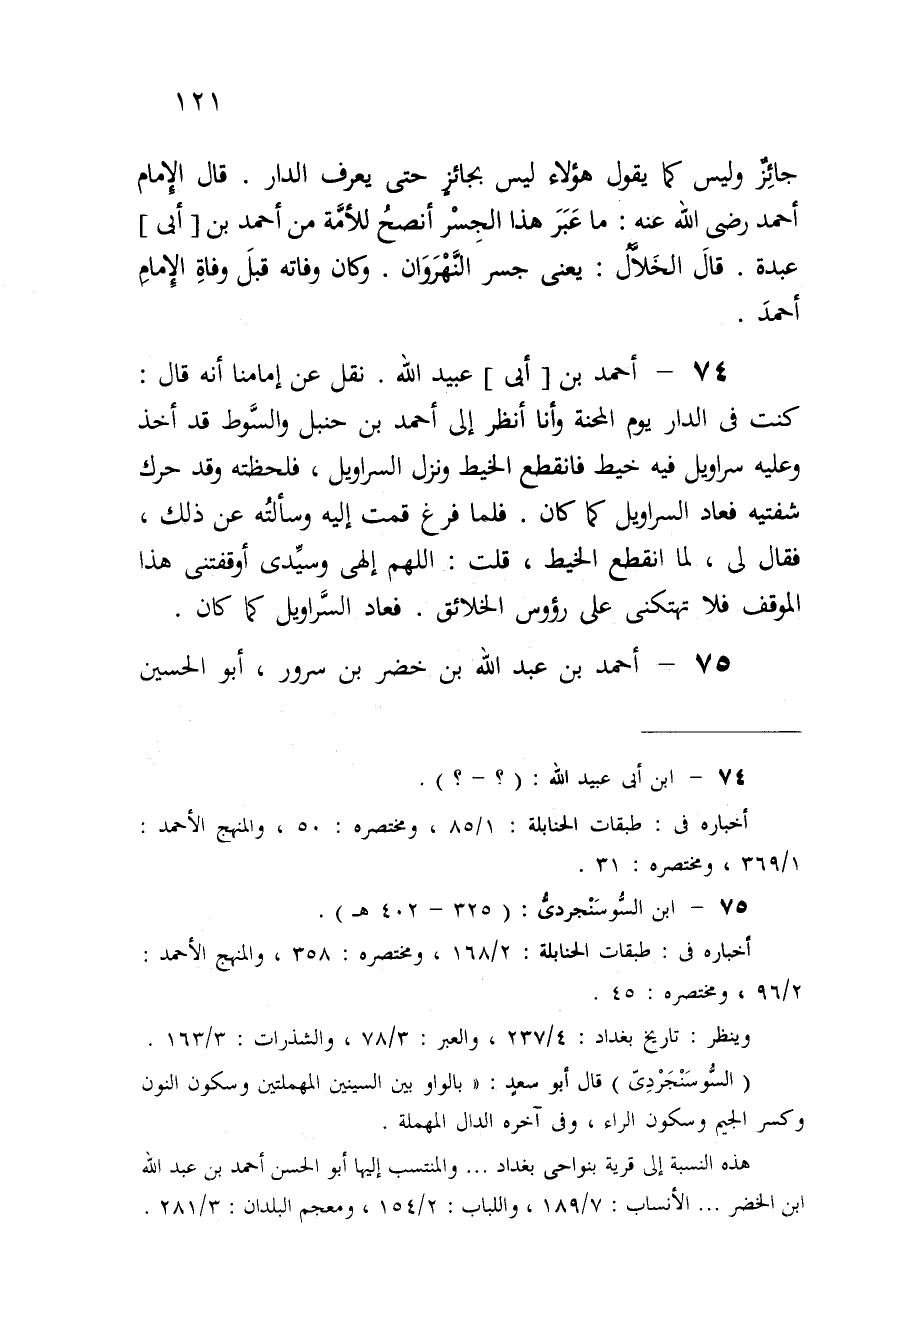 ١٢١
جائِزٌ وليس كما يقول هؤلاء ليس بجائزٍ حتى يعرف الدار . قال الإِمام
أحمد رضى الله عنه : ما عَبَرَ هذا الجِسْر أنصحُ للأمَّة من أحمد بن [ أبى ]
عبدة . قالَ الخَلاَّل : يعنى جسر النَّهْرَوَان . وكان وفاته قبلَ وفاةِ الإِمامِ
أحمدَ .
٧٤ – أحمد بن [ أبى ] عبيد الله . نقل عن إمامنا أنه قال :
كنت فى الدار يوم المحنة وأنا أنظر إلى أحمد بن حنبل والسَّوط قد أخذ
وعليه سراويل فيه خيط فانقطع الخيط ونزل السراويل ، فلحظته وقد حرك
شفتيه فعاد السراويل كما كان . فلما فرغ قمت إليه وسألتُه عن ذلك ،
فقال لى ، لما انقطع الخيط ، قلت : اللهم إلهى وسيِّدى أوقفتنى هذا
الموقف فلا تهتكنى على رؤوس الخلائق . فعاد السَّراويل كما كان .
٧٥ – أحمد بن عبد الله بن خضر بن سرور ، أبو الحسين
٧٤ – ابن أبى عبيد الله : ( ؟ – ؟ ) .
أخباره فى : طبقات الحنابلة : ٨٥/١ ، ومختصره : ٥٠ ، والمنهج الأحمد :
٣٦٩/١ ، ومختصره : ٣١ .
٧٥ – ابن السُّوسَنْجردىُّ : ( ٣٢٥ – ٤٠٢ هـ ) .
أخباره فى : طبقات الحنابلة : ١٦٨/٢ ، ومختصره : ٣٥٨ ، والمنهج الأحمد :
٩٦/٢ ، ومختصره : ٤٥ .
وينظر : تاريخ بغداد : ٢٣٧/٤ ، والعبر : ٧٨/٣ ، والشذرات : ١٦٣/٣ .
( السُّوسَنْجَرْدِىّ ) قال أبو سعدٍ : « بالواو بين السينين المهملتين وسكون النون
وكسر الجيم وسكون الراء ، وفى آخره الدال المهملة .
هذه النسبة إلى قرية بنواحى بغداد ... والمنتسب إليها أبو الحسن أحمد بن عبد الله
ابن الخضر ... الأنساب : ١٨٩/٧ ، واللباب : ١٥٤/٢ ، ومعجم البلدان : ٢٨١/٣ .